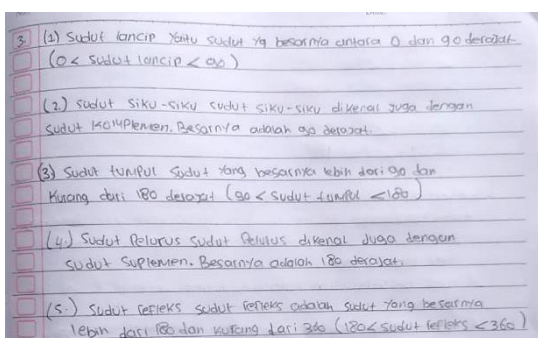 3. (1) Sudut lancip yaitu sudut yg besarnya antara 0 dan 90 derajat
(0 < sudut lancip < 90)
(2) Sudut siku-siku sudut siku-siku dikenal juga dengan
sudut komplemen. Besarnya adalah 90 derajat.
(3) Sudut tumpul sudut yang besarnya lebih dari 90 dan
kurang dari 180 derajat (90 < sudut tumpul < 180)
(4.) Sudut Pelurus sudut Pelurus dikenal juga dengan
sudut suplemen. Besarnya adalah 180 derajat.
(5.) Sudut refleks sudut refleks adalah sudut yang besarnya
lebih dari 180 dan kurang dari 360 (180 < sudut refleks < 360)